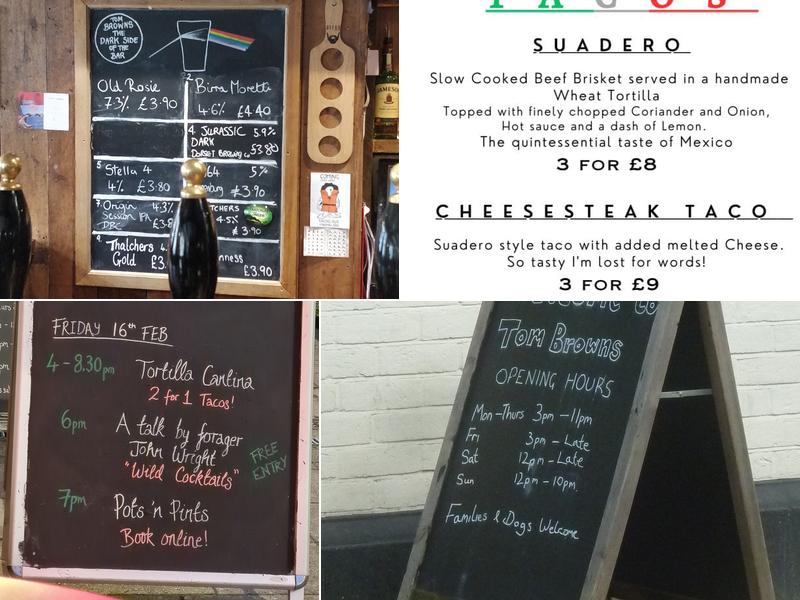 TOM
BROWNS
THE
DARK SIDE
OF THE
BAR
Old Rosie
7.3% £3.90
2.
Birra Moretti
4.6% £4.40
4. JURASSIC 5.9%
DARK
DORSET BREWING
£3.80
5.
Stella 4
4% £3.80
64 5%
£3.90
7. Origin 4.3%
Session IPA
DBC £3.8
TCHERS
4.5%
£3.90
9.
Thatchers 4.
Gold £3.
nness
£3.90
JAMESON
COMING
SUADERO
Slow Cooked Beef Brisket served in a handmade
Wheat Tortilla
Topped with finely chopped Coriander and Onion,
Hot sauce and a dash of Lemon.
The quintessential taste of Mexico
3 FOR £8
CHEESESTEAK TACO
Suadero style taco with added melted Cheese.
So tasty I'm lost for words!
3 FOR £9
FRIDAY 16th FEB
4-8.30pm Tortilla Cantina
2 for 1 Tacos!
6pm A talk by forager
John Wright
"Wild Cocktails"
FREE
ENTRY
7pm Pots 'n Pints
Book online!
Welcome to
Tom Browns
OPENING HOURS
Mon-Thurs 3pm-11pm
Fri 3pm - Late
Sat 12pm - Late
Sun 12pm - 10pm
Families & Dogs Welcome